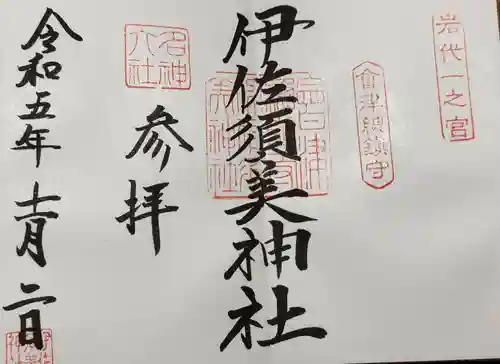 岩代一之宮
會津總鎮守
伊佐須美神社
名神
大社
参拝
令和五年
十一月
二日